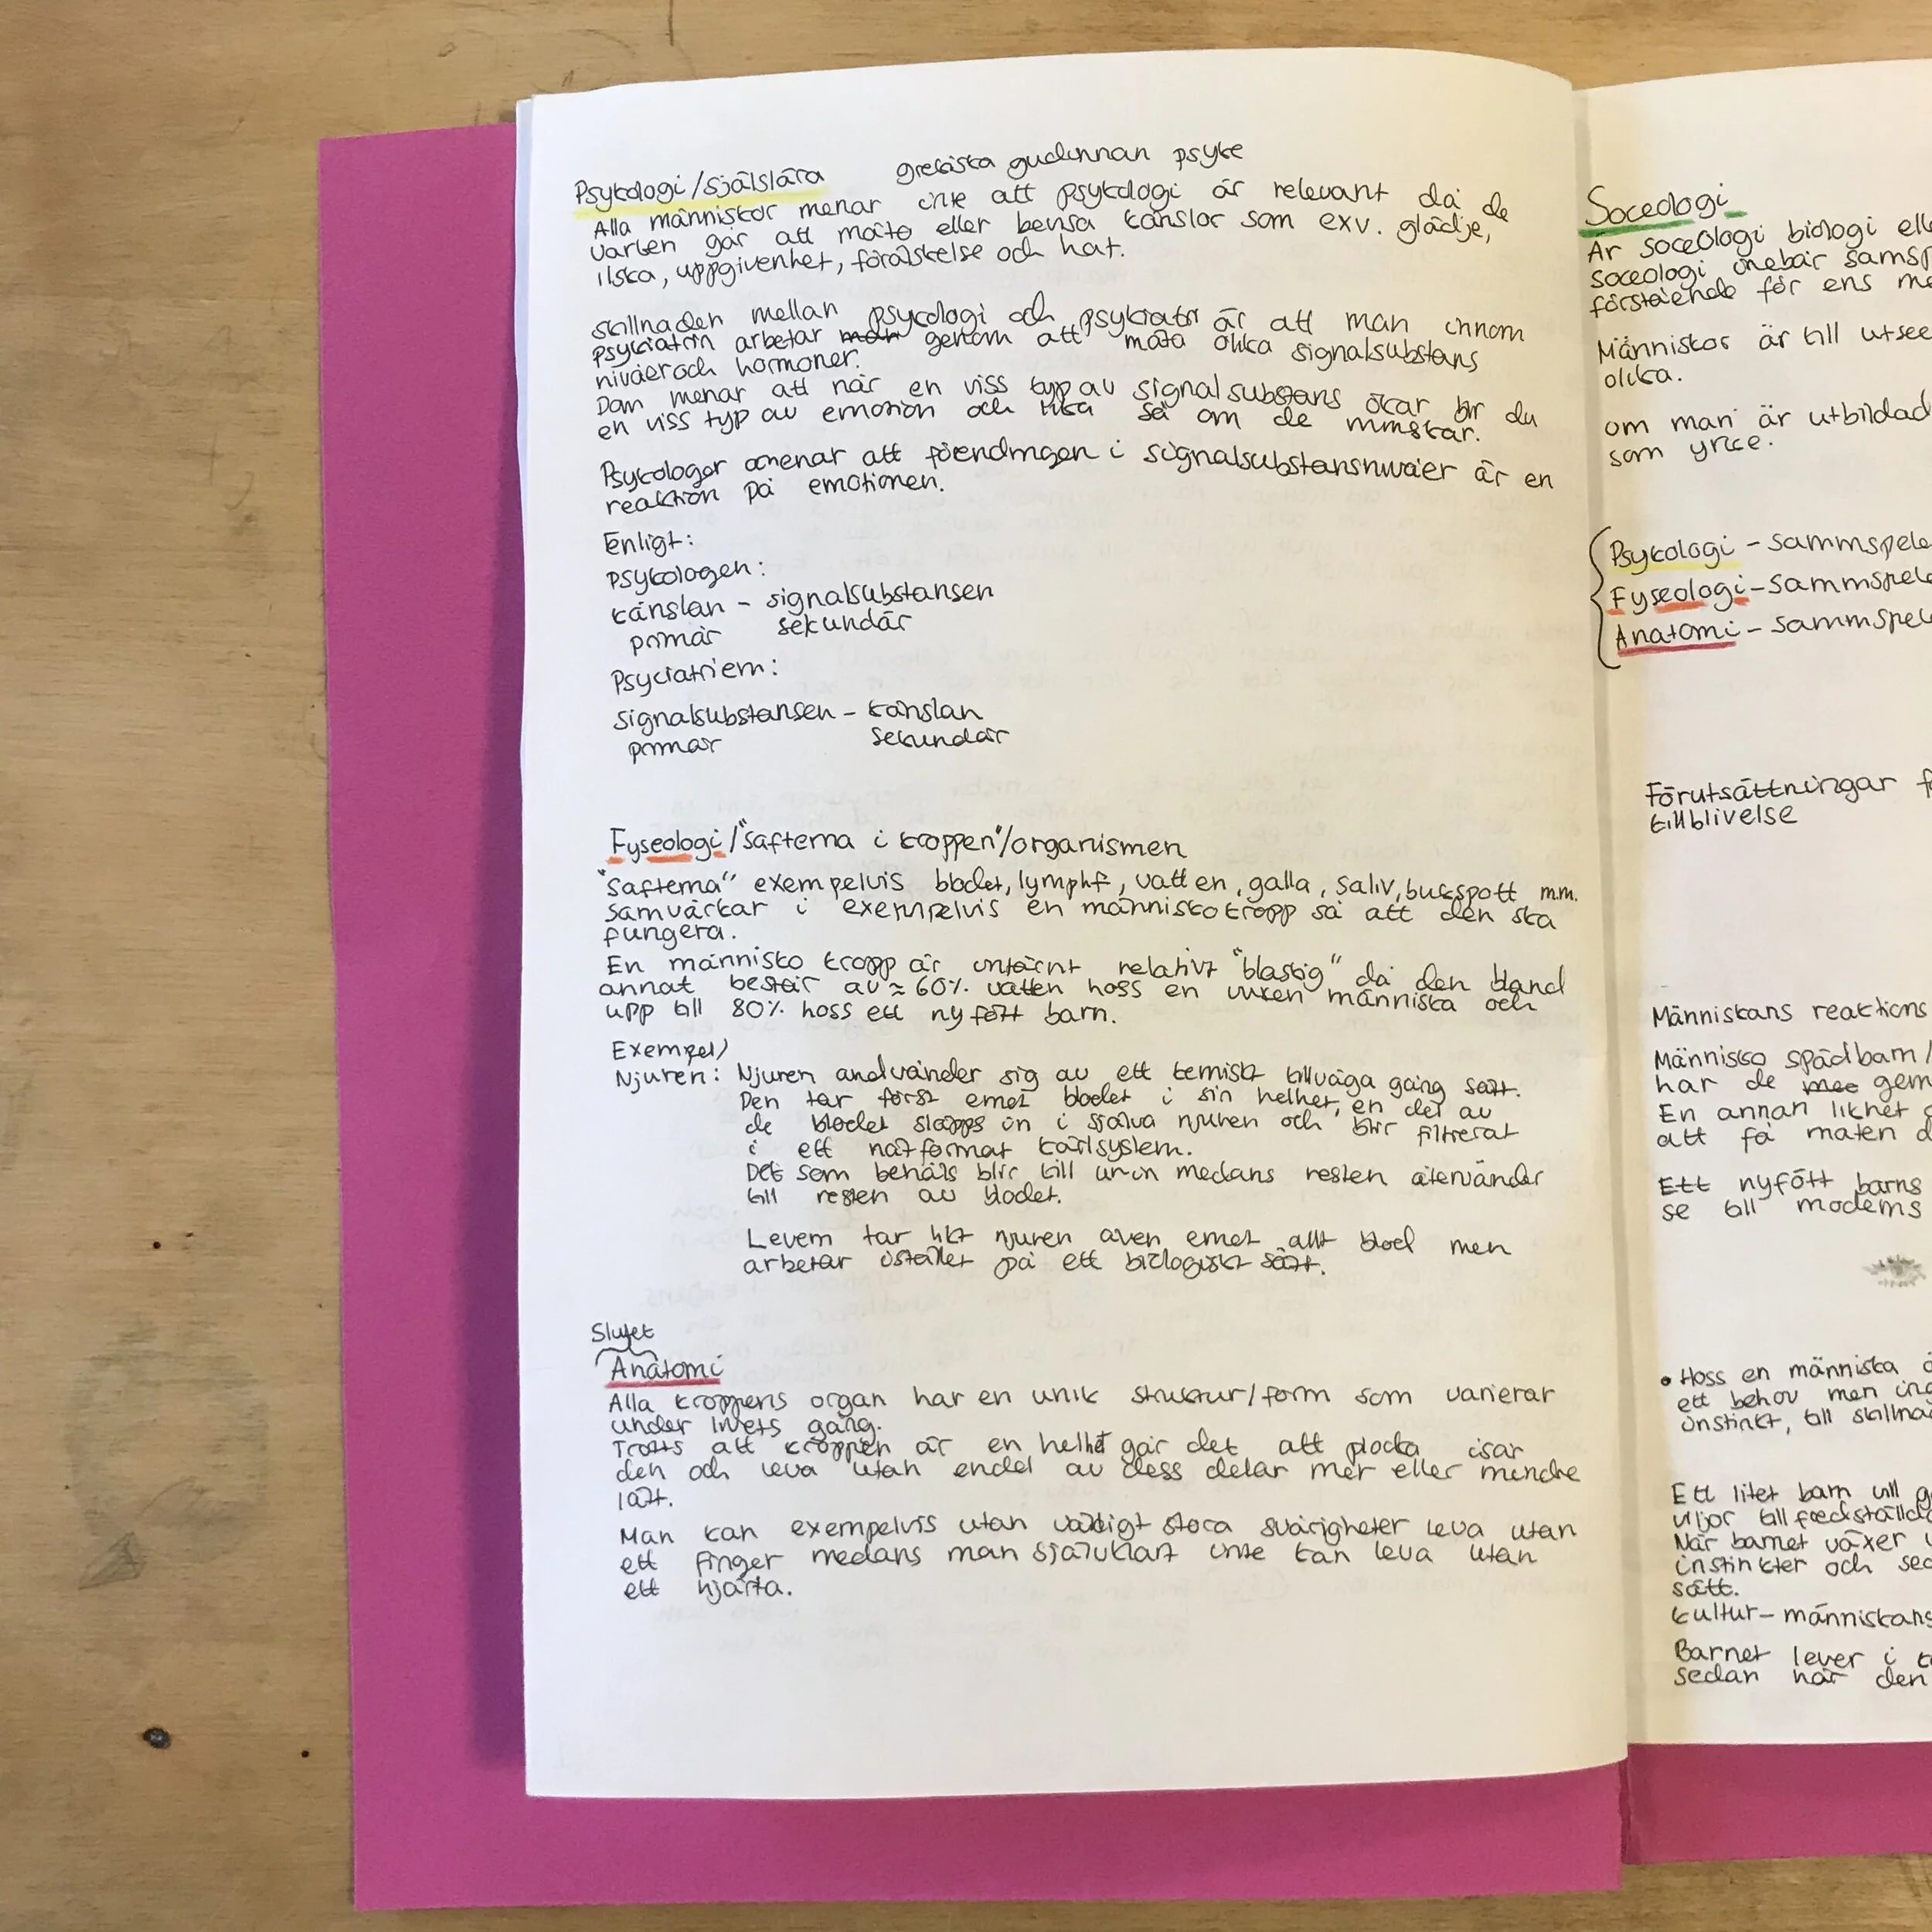 Psykologi/själslära grekiska gudinnan psyke
Alla människor menar inte att psykologi är relevant då de
varken går att mäta eller bevisa känslor som exv. glädje,
ilska, uppgivenhet, förälskelse och hat.
skillnaden mellan psykologi och psykiatri är att man innom
psykiatrin arbetar man genom att mäta olika signalsubstans
nivåer och hormoner.
Dom menar att när en viss typ av signalsubstans ökar blir du
en viss typ av emotion och lika så om de minskar.
Psykologer menar att förendringen i signalsubstansnivåer är en
reaktion på emotionen.
Enligt:
psykologen:
känslan - signalsubstansen
primär sekundär
Psyciatriern:
signalsubstansen - känslan
primär sekundär
Fyseologi/"safterna i kroppen"/organismen
"safterna" exempelvis blodet, lymphf, vatten, galla, saliv, bukspott mm.
samvärkar i exempelvis en människokropp så att den ska
fungera.
En människo kropp är intärnt relativt "blaskig" då den bland
annat består av ≈ 60% vatten hoss en vuxen människa och
upp till 80% hoss ett ny fött barn.
Exempel/
Njuren: Njuren andvänder sig av ett kemiskt tillväga gång sätt.
Den tar först emot blodet i sin helhet, en del av
de blodet släpps in i själva njuren och blir filtrerat
i ett nätformat kärlsystem.
Det som behåls blir till urin medans resten återvänder
till resten av blodet.
Levern tar likt njuren även emot allt blod men
arbetar istället på ett biologiskt sätt.
Slujet
Anatomi
Alla kroppens organ har en unik struktur/form som varierar
under livets gång.
Trotts att kroppen är en helhet går det att plocka isär
den och leva utan endel av dess delar mer eller mindre
lätt.
Man kan exempelvis utan väldigt stora svårigheter leva utan
ett finger medans man självklart inte kan leva utan
ett hjärta.
Soceologi
Är soceologi biologi elle
soceologi inebär samsp
förstående för ens me
Människor är till utsee
olika.
om man är utbildad
som yrke.
Psykologi - sammspele
Fyseologi - sammspele
Anatomi - sammspel
Förutsättningar f
tillblivelse
Människans reaktions
Människo spädbarn/
har de mee gem
En annan likhet
att få maten d
Ett nyfött barns
se till moderns
• Hoss en människa ä
ett behov men ing
instinkt, till skillna
Ett litet barn vill g
viljor tillfredställda
När barnet växer u
instinkter och sed
sätt.
kultur - människans
Barnet lever i k
sedan när den